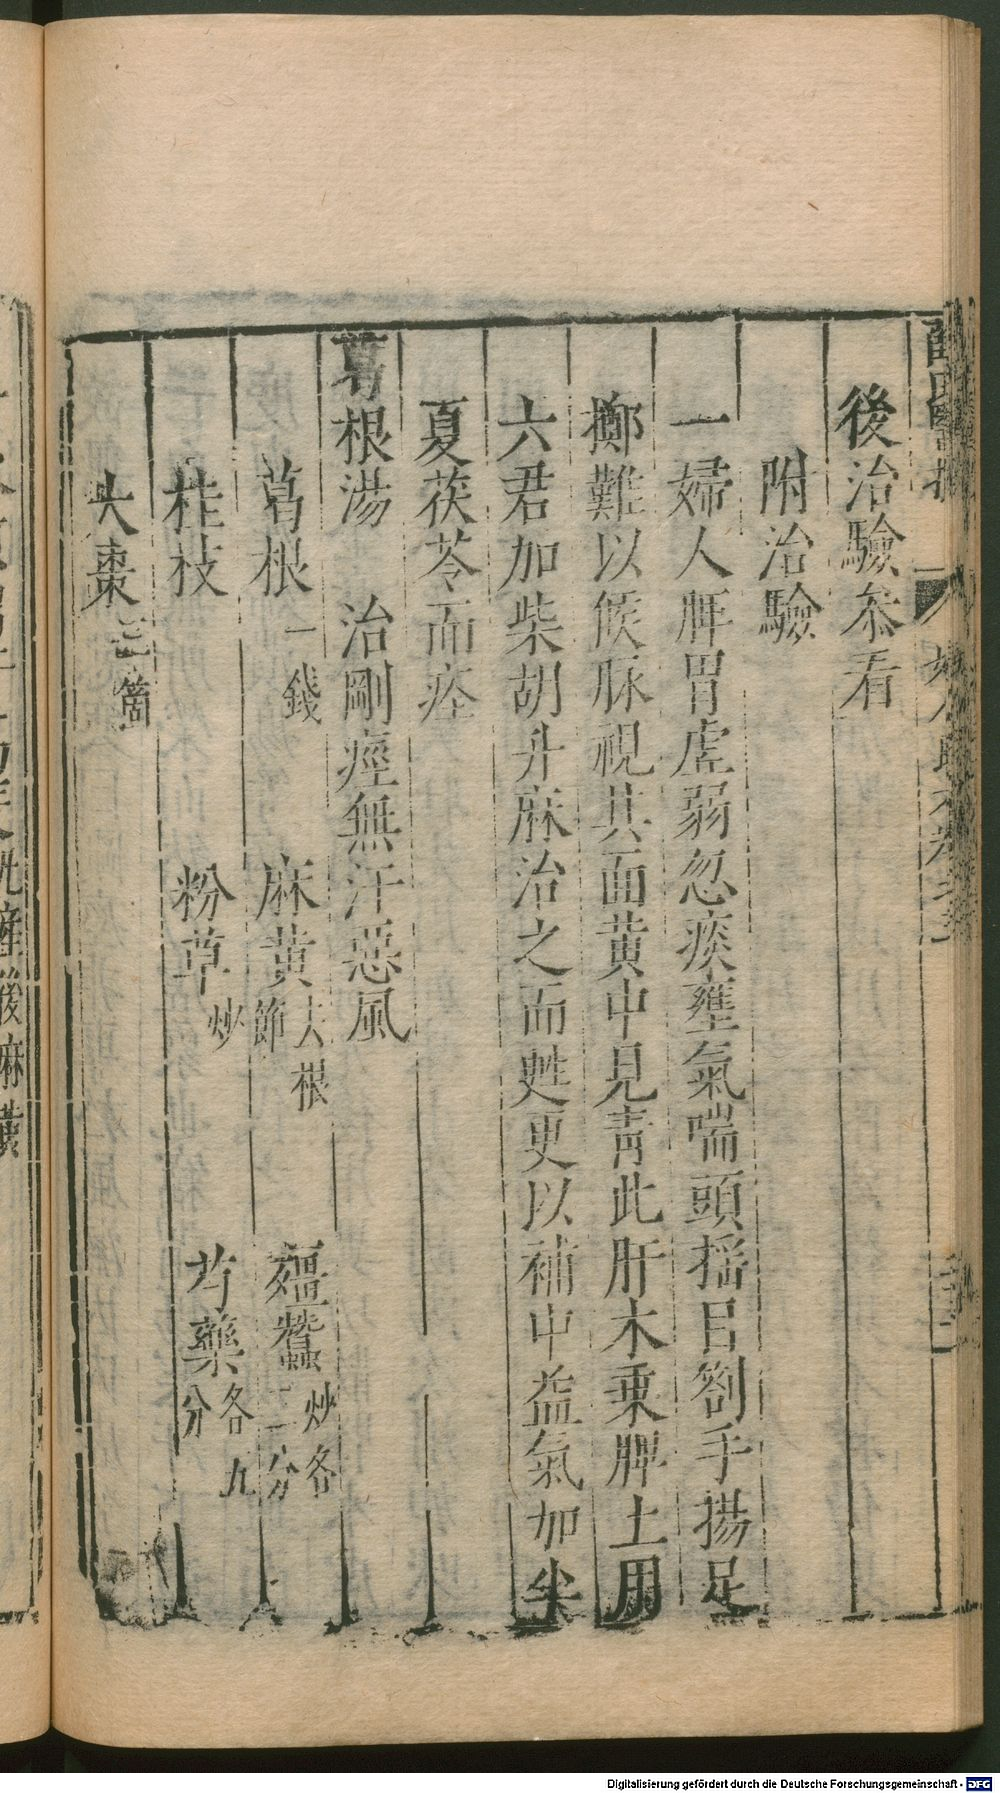 後治驗叅看
附治驗
一婦人脾胃虛弱忽痰壅氣喘頭揺目劄手揚足
擲難以候脉視其面黄中見靑此肝木乗脾土用
六君加柴胡升麻治之而甦更以補中益氣加半
夏茯苓而痊
葛根湯　治剛痙無汗惡風
葛根一錢　麻黄去根節　殭蠶炒各二分
桂枝　粉草炒　芍藥各五分
大棗三箇
Digitalisierung gefördert durch die Deutsche Forschungsgemeinschaft - DFG